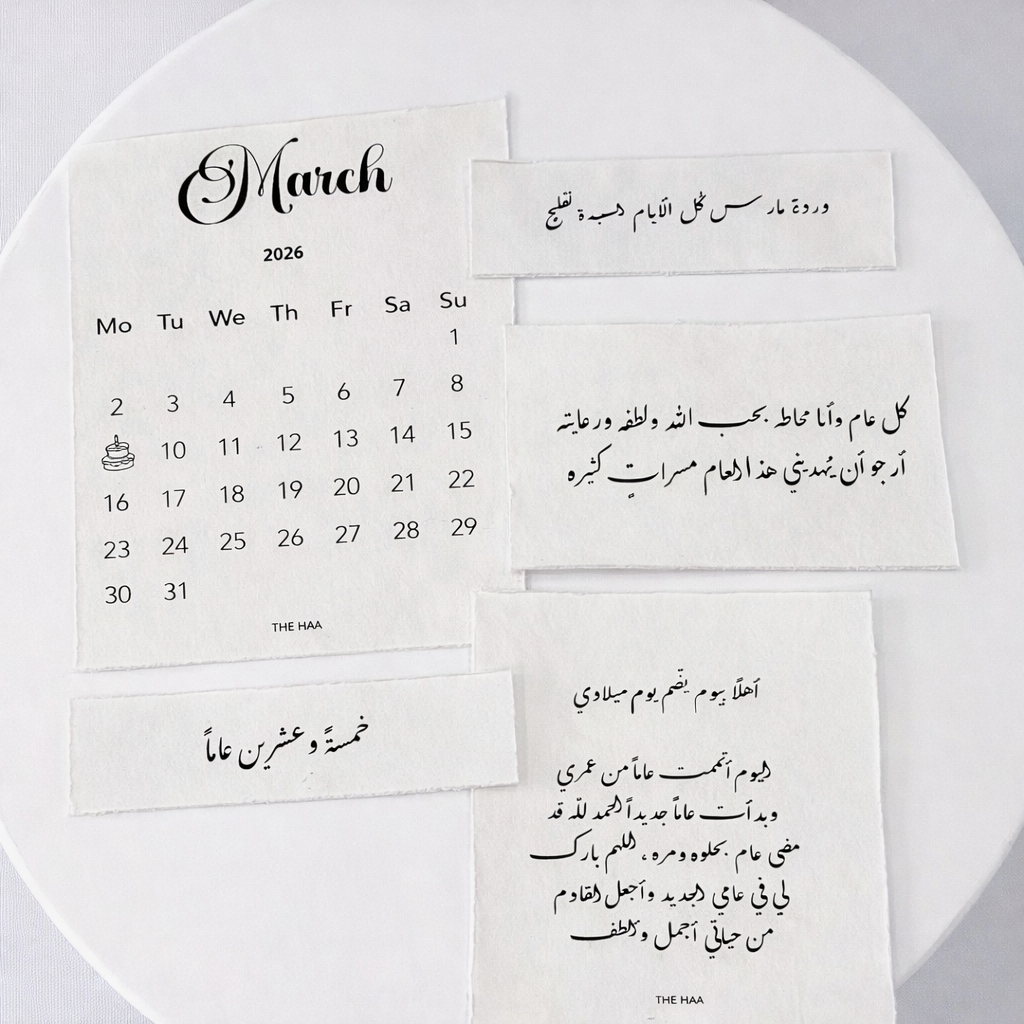 March
2026
Mo Tu We Th Fr Sa Su
1
2 3 4 5 6 7 8
10 11 12 13 14 15
16 17 18 19 20 21 22
23 24 25 26 27 28 29
30 31
THE HAA
وردة مارس كل الأيام
كل عام وأنا محاطه بحب الله ولطفه ورعايته
أرجو أن يُهديني هذا العام مسراتٍ كثيره
خمسةً وعشرين عاماً
أهلًا بيوم يضم يوم ميلادي
اليوم أتممت عاماً من عمري
وبدأت عاماً جديداً الحمد للّه قد
مضى عام بحلوه ومره، اللهم بارك
لي في عامي الجديد وأجعل القادم
من حياتي أجمل وألطف
THE HAA